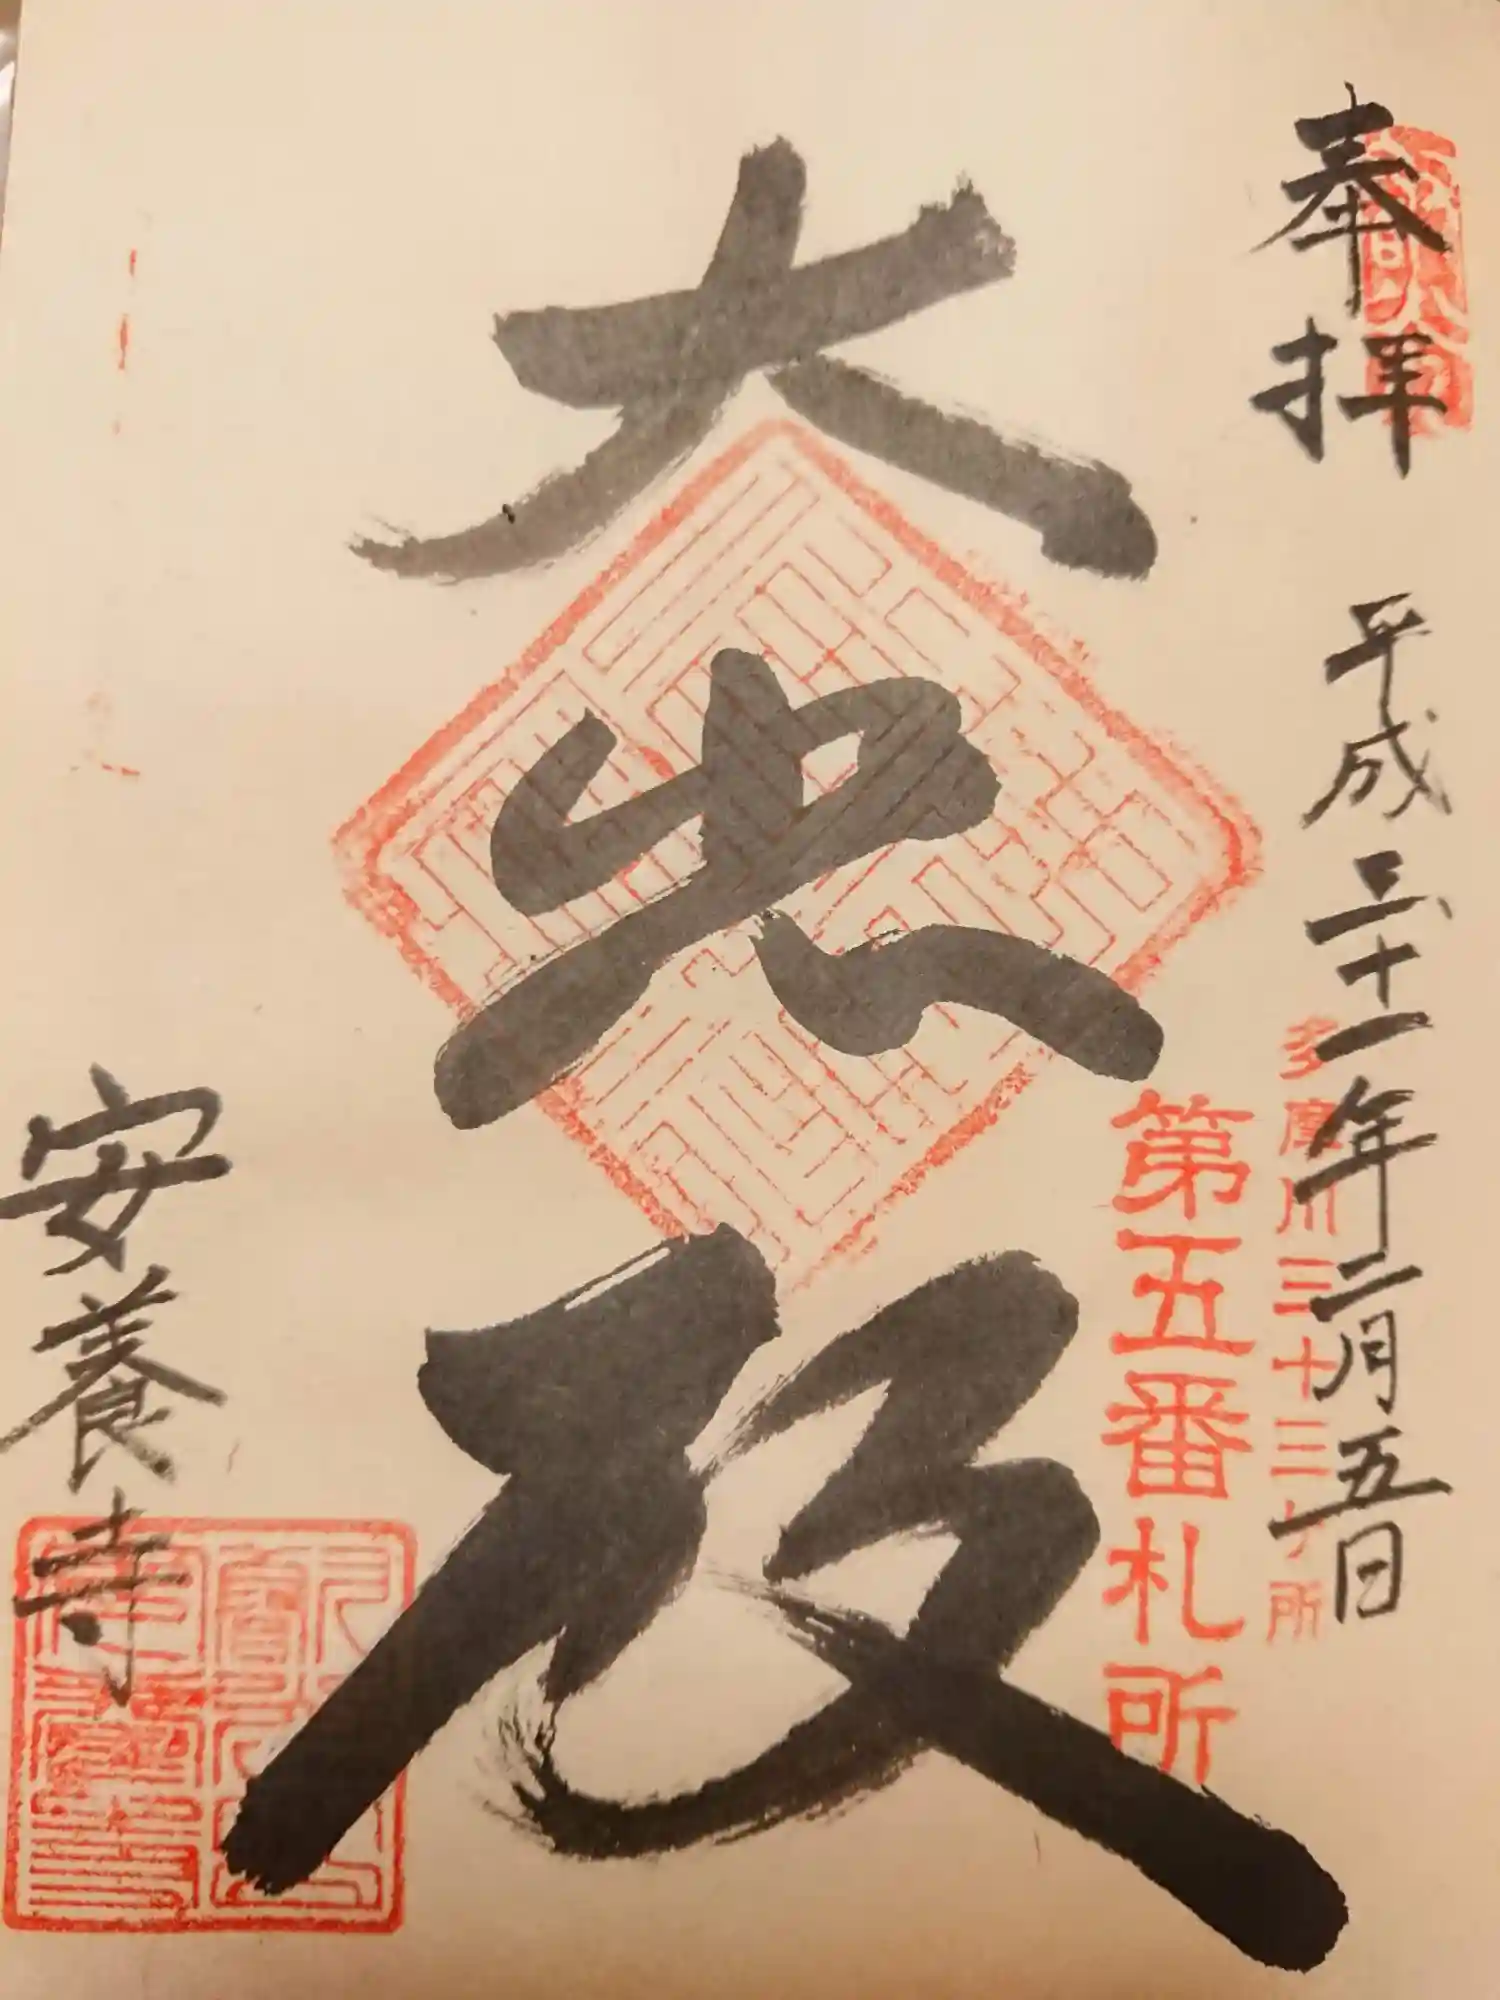 奉拝
平成三十一年二月五日
多摩川三十三ヶ所
第五番札所
大悲殿
安養寺